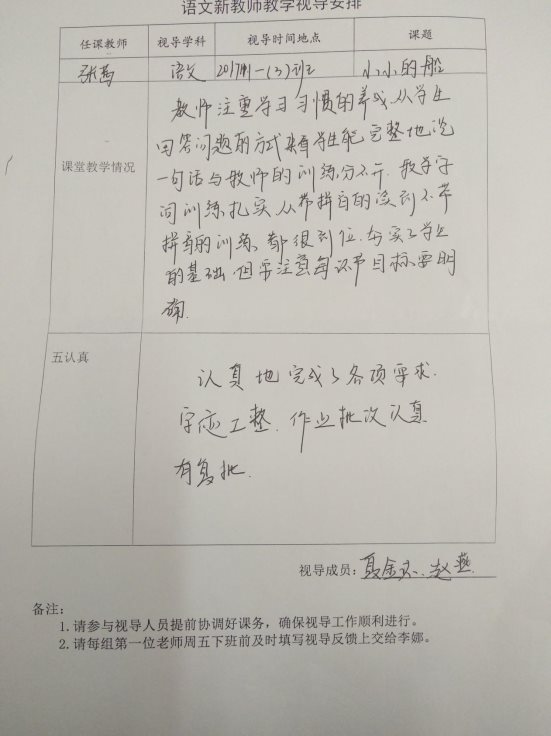 语文新教师教学视导安排
任课教师 视导学科 视导时间地点 课题
张 语文 一(3)班 小小的船
课堂教学情况
教师注重学习习惯的养成,从学生
回答问题的方式来看学生能完整地说
一句话与教师的训练分不开.教学字
词训练扎实,从带拼音的读到不带
拼音的训练都很到位.夯实了学生
的基础,但要注意每环节目标要明
确.
五认真
认真地完成了各项要求.
字迹工整.作业批次认真
有复批.
视导成员:夏金 、赵燕
备注:
1.请参与视导人员提前协调好课务,确保视导工作顺利进行。
2.请每组第一位老师周五下班前及时填写视导反馈上交给李娜。